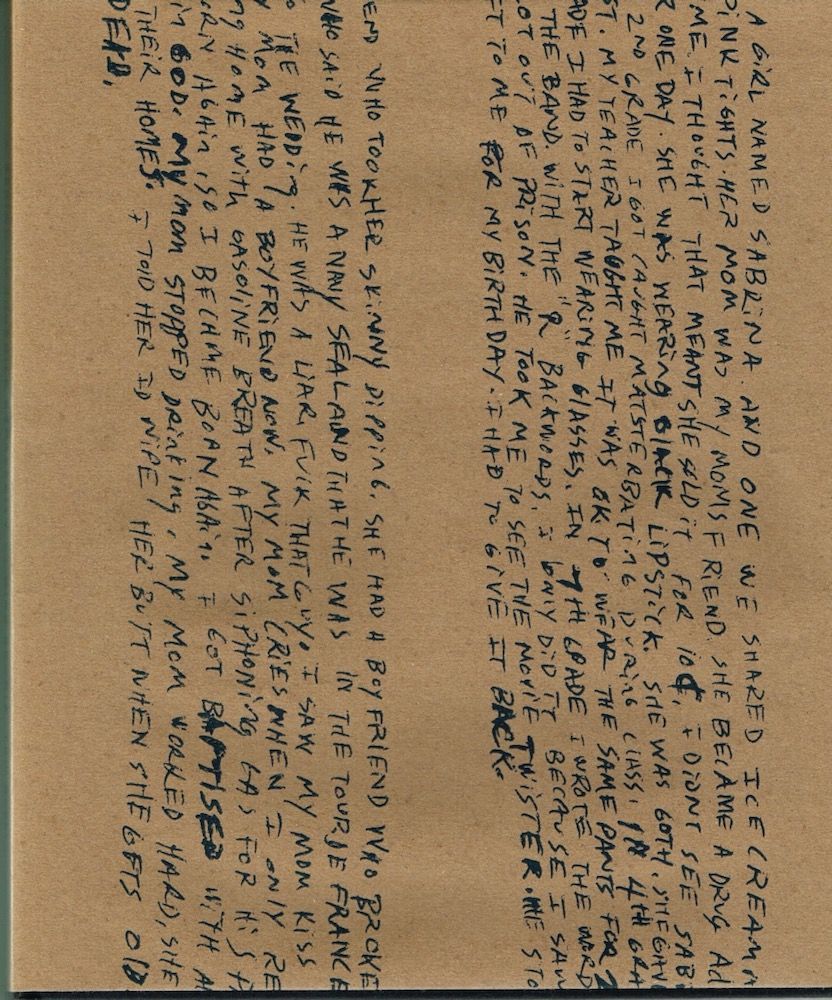 A GIRL NAMED SABRINA. AND ONE WE SHARED ICE CREAM
PINK TIGHTS. HER MOM WAS MY MOMS FRIEND. SHE BECAME A DRUG AD
ME. I THOUGHT THAT MEANT SHE SOLD IT FOR 10¢. I DIDNT SEE SAB
R ONE DAY. SHE WAS WEARING BLACK LIPSTICK. SHE WAS GOTH. SHE GAVE
2ND GRADE I GOT CAUGHT MATSTERBATING DURING CLASS. IN 4TH GRA
ST. MY TEACHER TAUGHT ME IT WAS OK TO WEAR THE SAME PANTS FOR 2
ADE I HAD TO START WEARING GLASSES. IN 7TH GRADE I WROTE THE WORD
THE BAND WITH THE "R" BACKWORDS. I ONLY DID IT BECAUSE I SAW
OT OUT OF PRISON. HE TOOK ME TO SEE THE MOVIE TWISTER. HE STO
FT TO ME FOR MY BIRTHDAY. I HAD TO GIVE IT BACK.
END WHO TOOK HER SKINNY DIPPING. SHE HAD A BOYFRIEND WHO BROKE
WHO SAID HE WAS A NAVY SEAL AND THAT HE WAS IN THE TOUR DE FRANCE
THE WEDDING. HE WAS A LIAR. FUCK THAT GUY. I SAW MY MOM KISS
Y MOM HAD A BOYFRIEND NOW. MY MOM CRIES WHEN I ONLY RE
NG HOME WITH GASOLINE BREATH AFTER SIPHONING GAS FOR HIS
AGAIN, SO I BECAME BORN AGAIN. I GOT BAPTISED WITH
IN GOD. MY MOM STOPPED DRINKING. MY MOM WORKED HARD, SHE
THEIR HOMES. I TOLD HER ID WIPE HER BUTT WHEN SHE GETS OLD
DEAD.